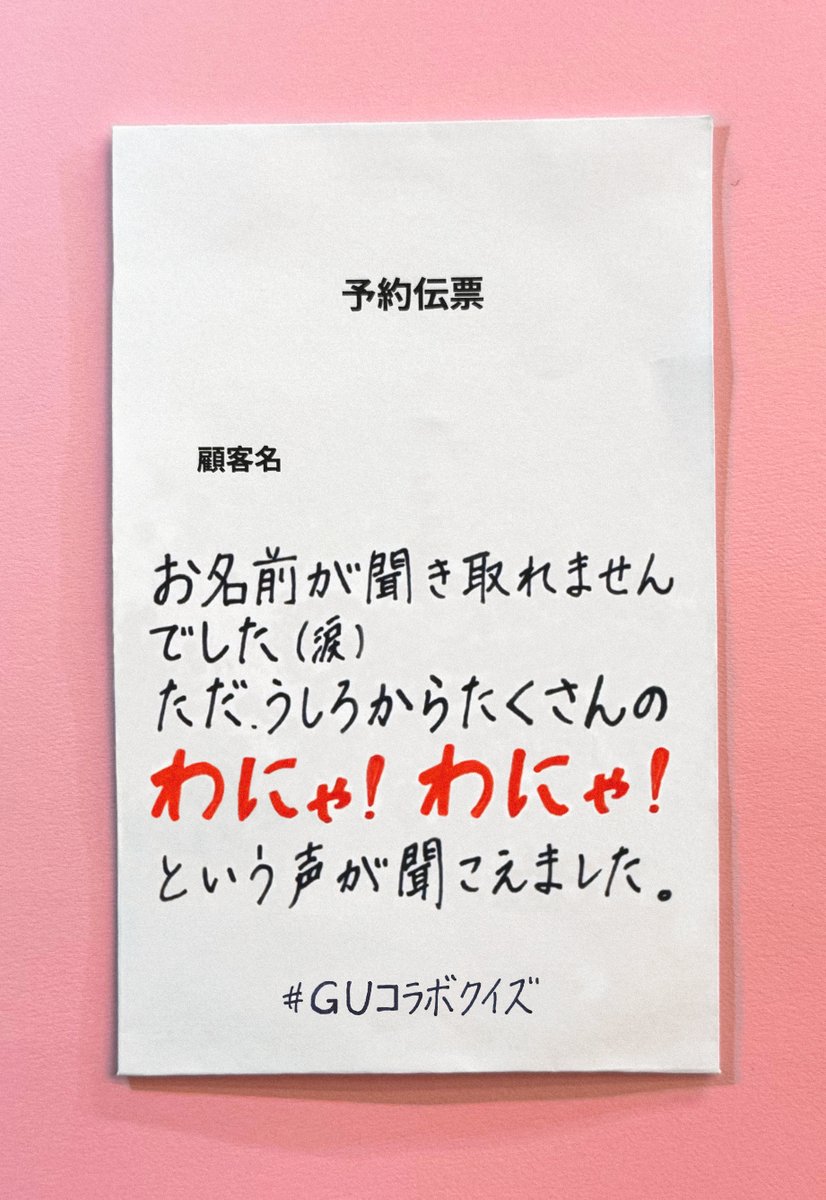 予約伝票
顧客名
お名前が聞き取れません
でした(涙)
ただ、うしろからたくさんの
わにゃ! わにゃ!
という声が聞こえました。
#GUコラボクイズ